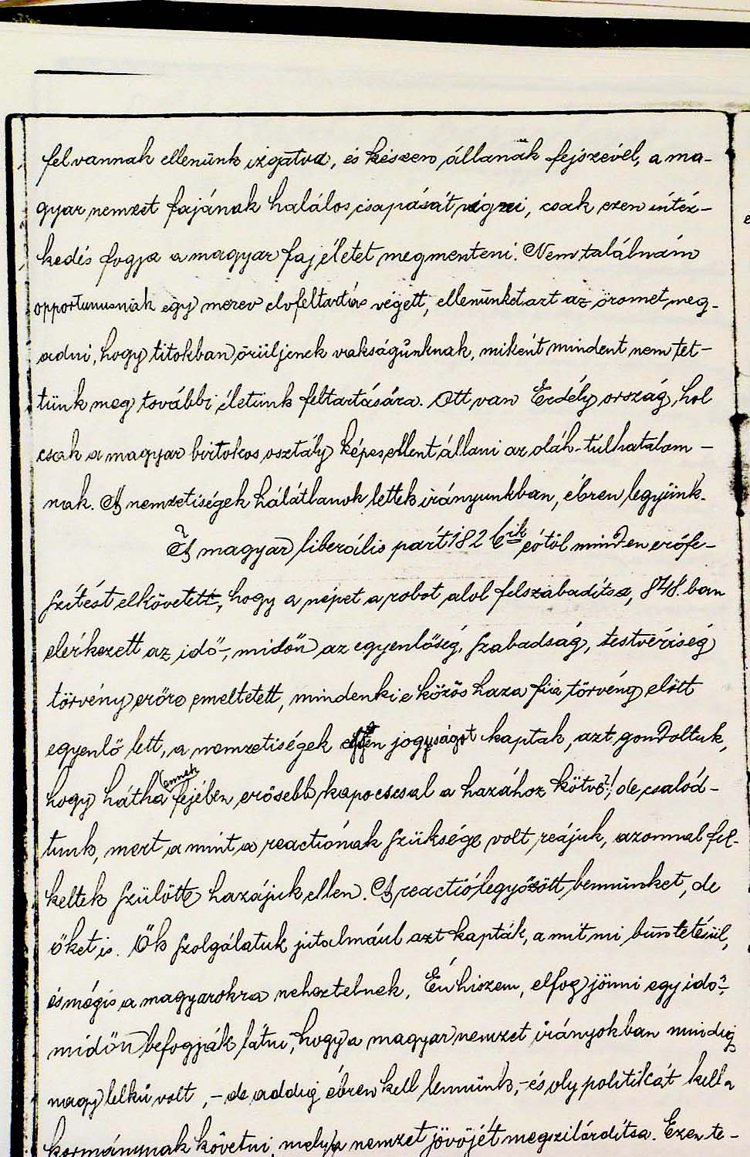 fel vannak ellenünk izgatva, és készen állanak fejszével, a ma-
gyar nemzet fajának halálos csapását végezni, csak ezen intéz-
kedés fogja a magyar faj életet megmenteni. Nem találnám
opportunusnak egy merev elvfeltartás végett, ellenünket azt az örömet meg-
adni, hogy titokban örüljenek vakságunknak, miként mindent nem tet-
tünk meg további életünk feltartására. Ott van Erdély ország, hol
csak a magyar birtokos osztály képes ellent állani az oláh-túlhatalom-
nak. A nemzetiségek hálátlanok lettek irányunkban, ébren legyünk.
A magyar liberális párt 182 ik eötöl minden erőfe-
szítést elkövetett, hogy a népet a robot alol felszabadítsa, 848.ban
elérkezett az idő-, midőn az egyenlőség, szabadság, testvériség
törvény erőre emeltetett, mindenki e közös haza fia, törvény elött
egyenlő lett, a nemzetiségek jogyságot kaptak, azt gondoltuk,
hogy hátha ennek fejében erősebb kapocscsal a hazához kötve?! de csalód-
tunk, mert a mint a reactiónak szüksége volt reájuk, azonnal fel-
keltek szülötte hazájuk ellen. A reactió legyőzött bennünket, de
őket is. Ők szolgálatuk jutalmául azt kapták, a mit mi büntetésül,
és mégis a magyarokra neheztelnek. Én hiszem, elfog jönni egy idő-,
midőn befogják látni, hogy a magyar nemzet irányokban mindig
nagy lelkű volt, - de addig ébren kell lennünk, - és oly politikát kell a
kormánynak követni, mely a nemzet jövőjét megszilárdítsa. Ezen te-